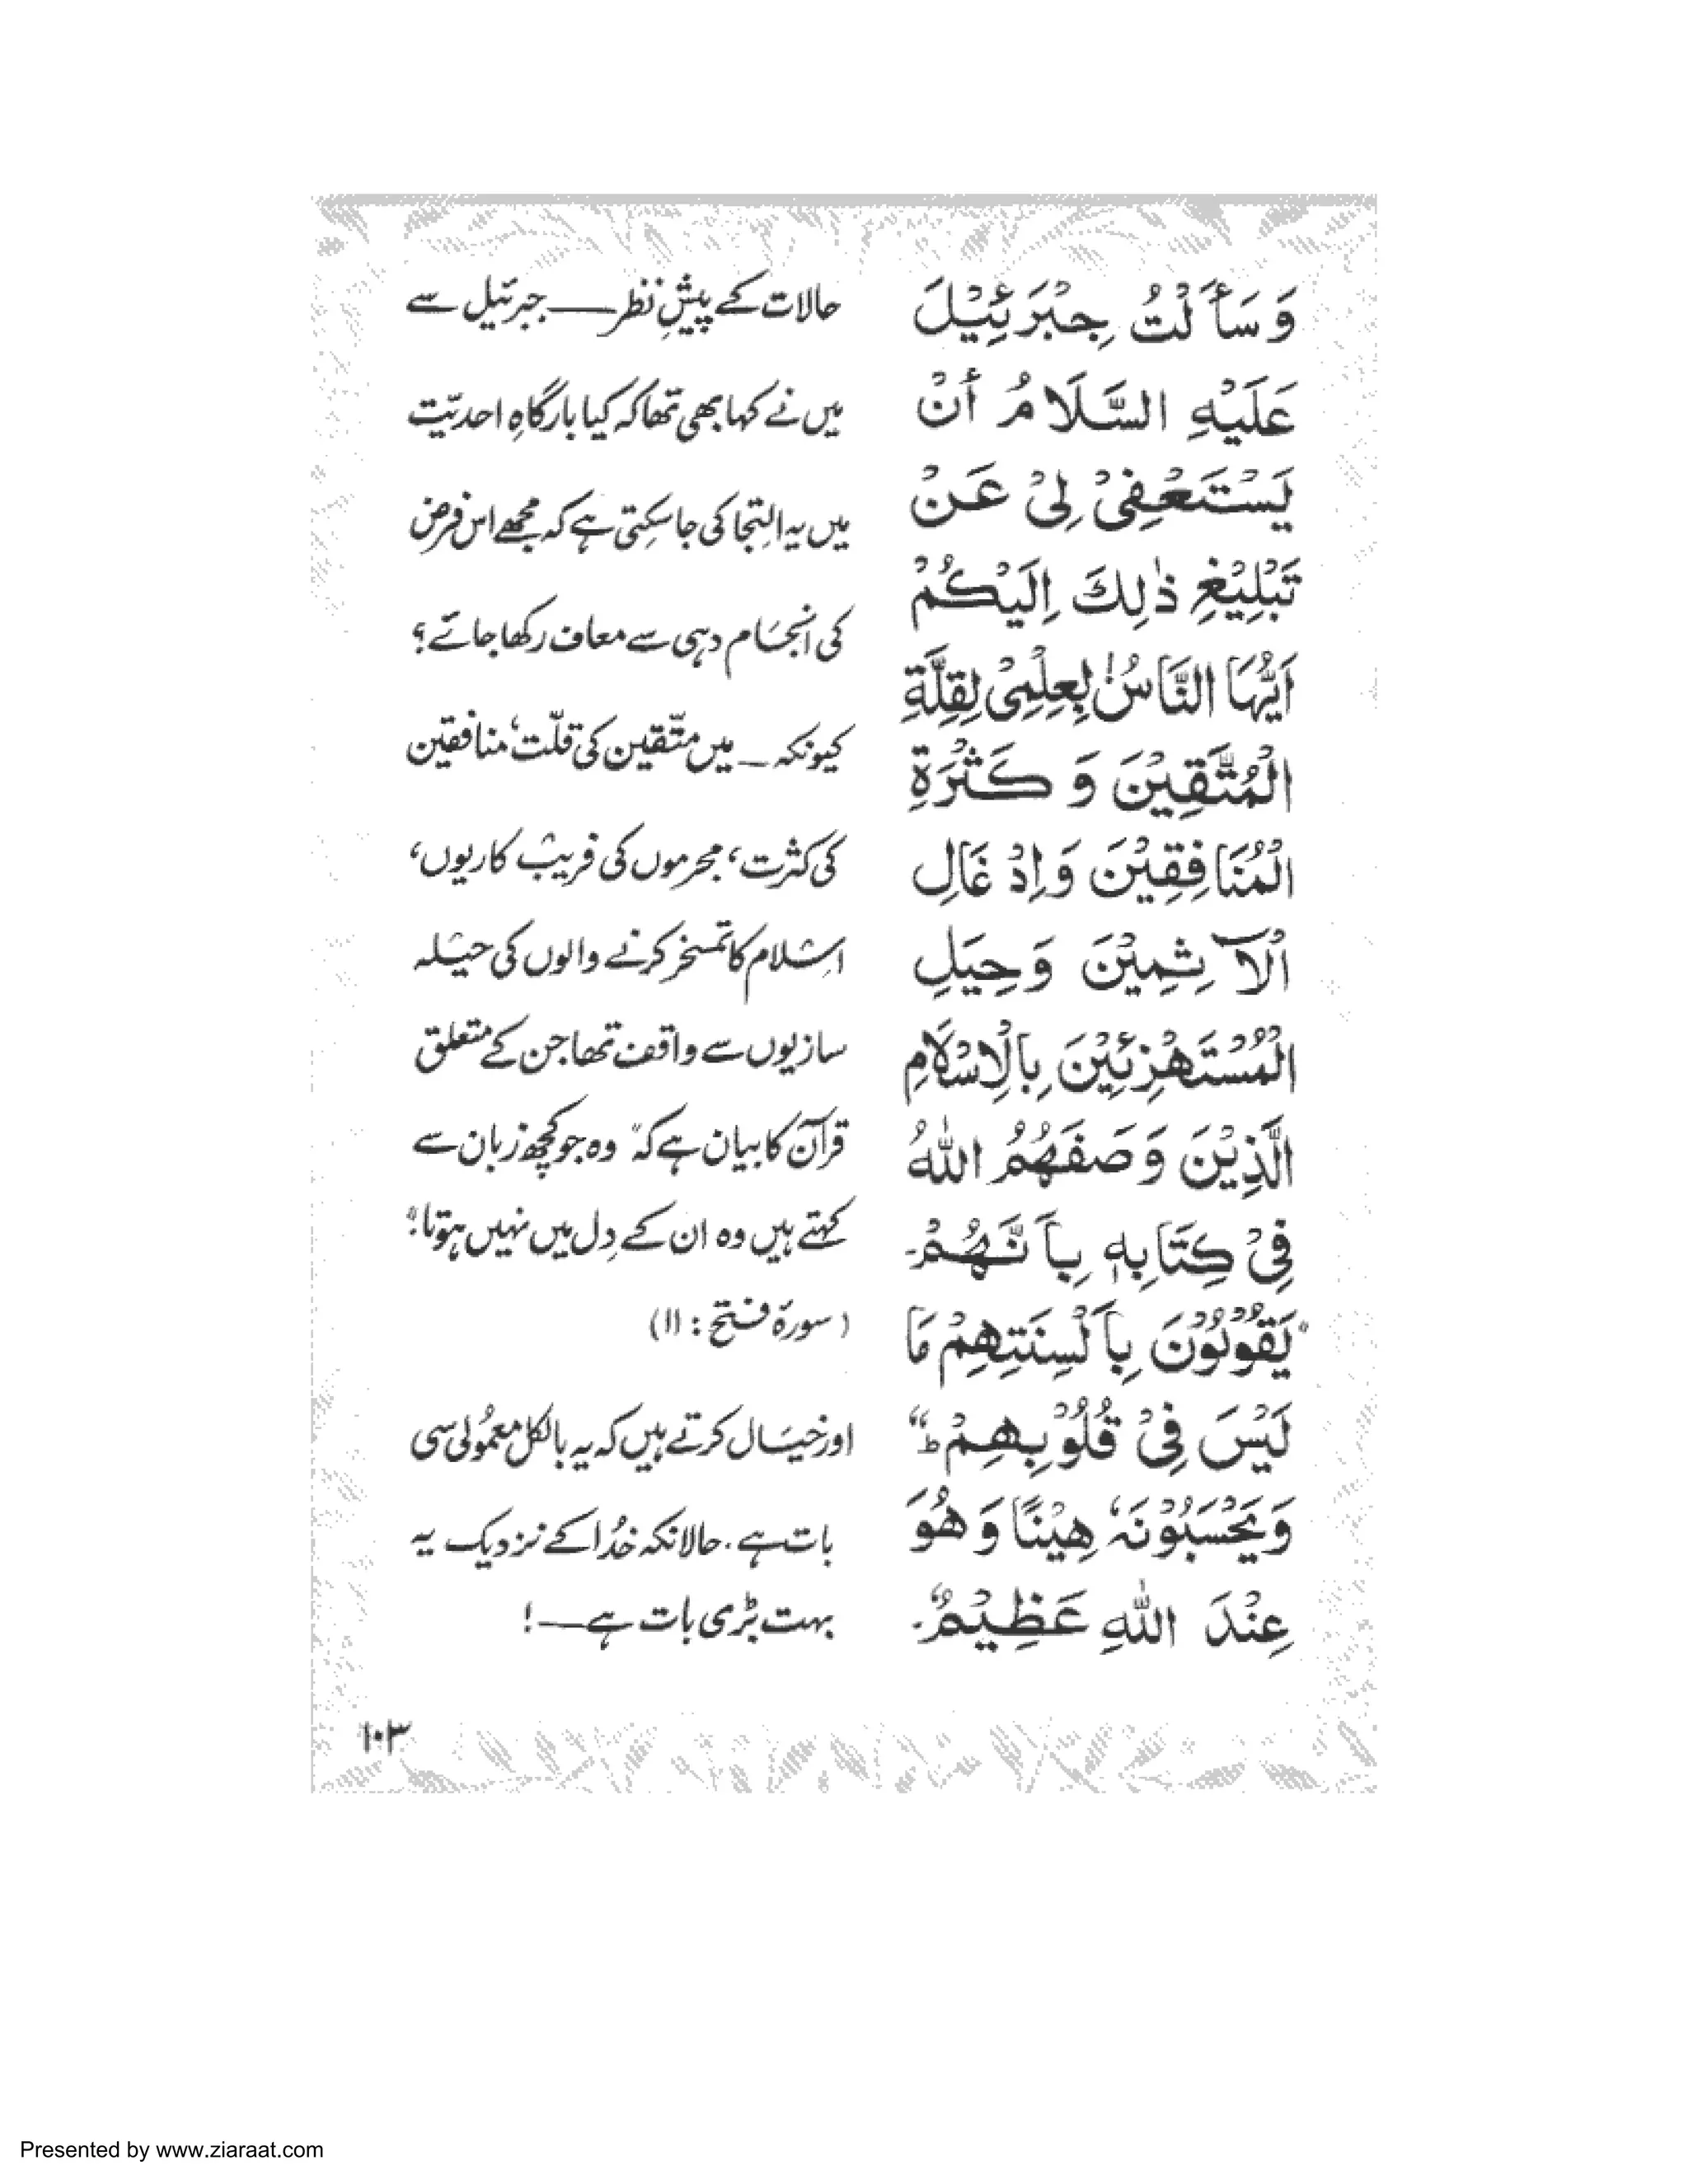 وَسَأَلْتُ جِبْرَئِيْلَ
عَلَيْهِ السَّلَامُ أَنْ
يَسْتَعْفِىْ لِىْ عَنْ
تَبْلِيْغِ ذٰلِكَ اِلَيْكُمْ
اَيُّهَا النَّاسُ! لِعِلْمِىْ لِقِلَّةِ
الْمُتَّقِيْنَ وَ كَثْرَةِ
الْمُنَافِقِيْنَ وَاِدْغَالِ
الْآثِمِيْنَ وَحِيَلِ
الْمُسْتَهْزِئِيْنَ بِالْاِسْلَامِ
الَّذِيْنَ وَصَفَهُمُ اللهُ
فِىْ كِتَابِهٖ بِأَنَّهُمْ۔
"يَقُوْلُوْنَ بِأَلْسِنَتِهِمْ مَا
لَيْسَ فِىْ قُلُوْبِهِمْ ؕ"
وَيَحْسَبُوْنَهٗ هِيْنًا وَهُوَ
عِنْدَ اللهِ عَظِيْمٌ"۔
حالات کے پیشِ نظر——جبرئیل سے
میں نے کہا بھی تھا کہ کیا بارگاہِ احدیّت
میں یہ التجا کی جاسکتی ہے کہ مجھے اس فرض
کی انجام دہی سے معاف رکھا جائے؟
کیونکہ — میں متّقین کی قلّت، منافقین
کی کثرت، مجرموں کی فریب کاریوں،
اسلام کا تمسخر کرنے والوں کی حیلہ
سازیوں سے واقف تھا جن کے متعلق
قرآن کا بیان ہے کہ "وہ جو کچھ زبان سے
کہتے ہیں وہ ان کے دِل میں نہیں ہوتا۔"
(سورۂ فتح: ۱۱)
اور خیال کرتے ہیں کہ یہ بالکل معمُولی سی
بات ہے۔ حالانکہ خُدا کے نزدیک یہ
بہت بڑی بات ہے——!
۱۰۳
Presented by www.ziaraat.com